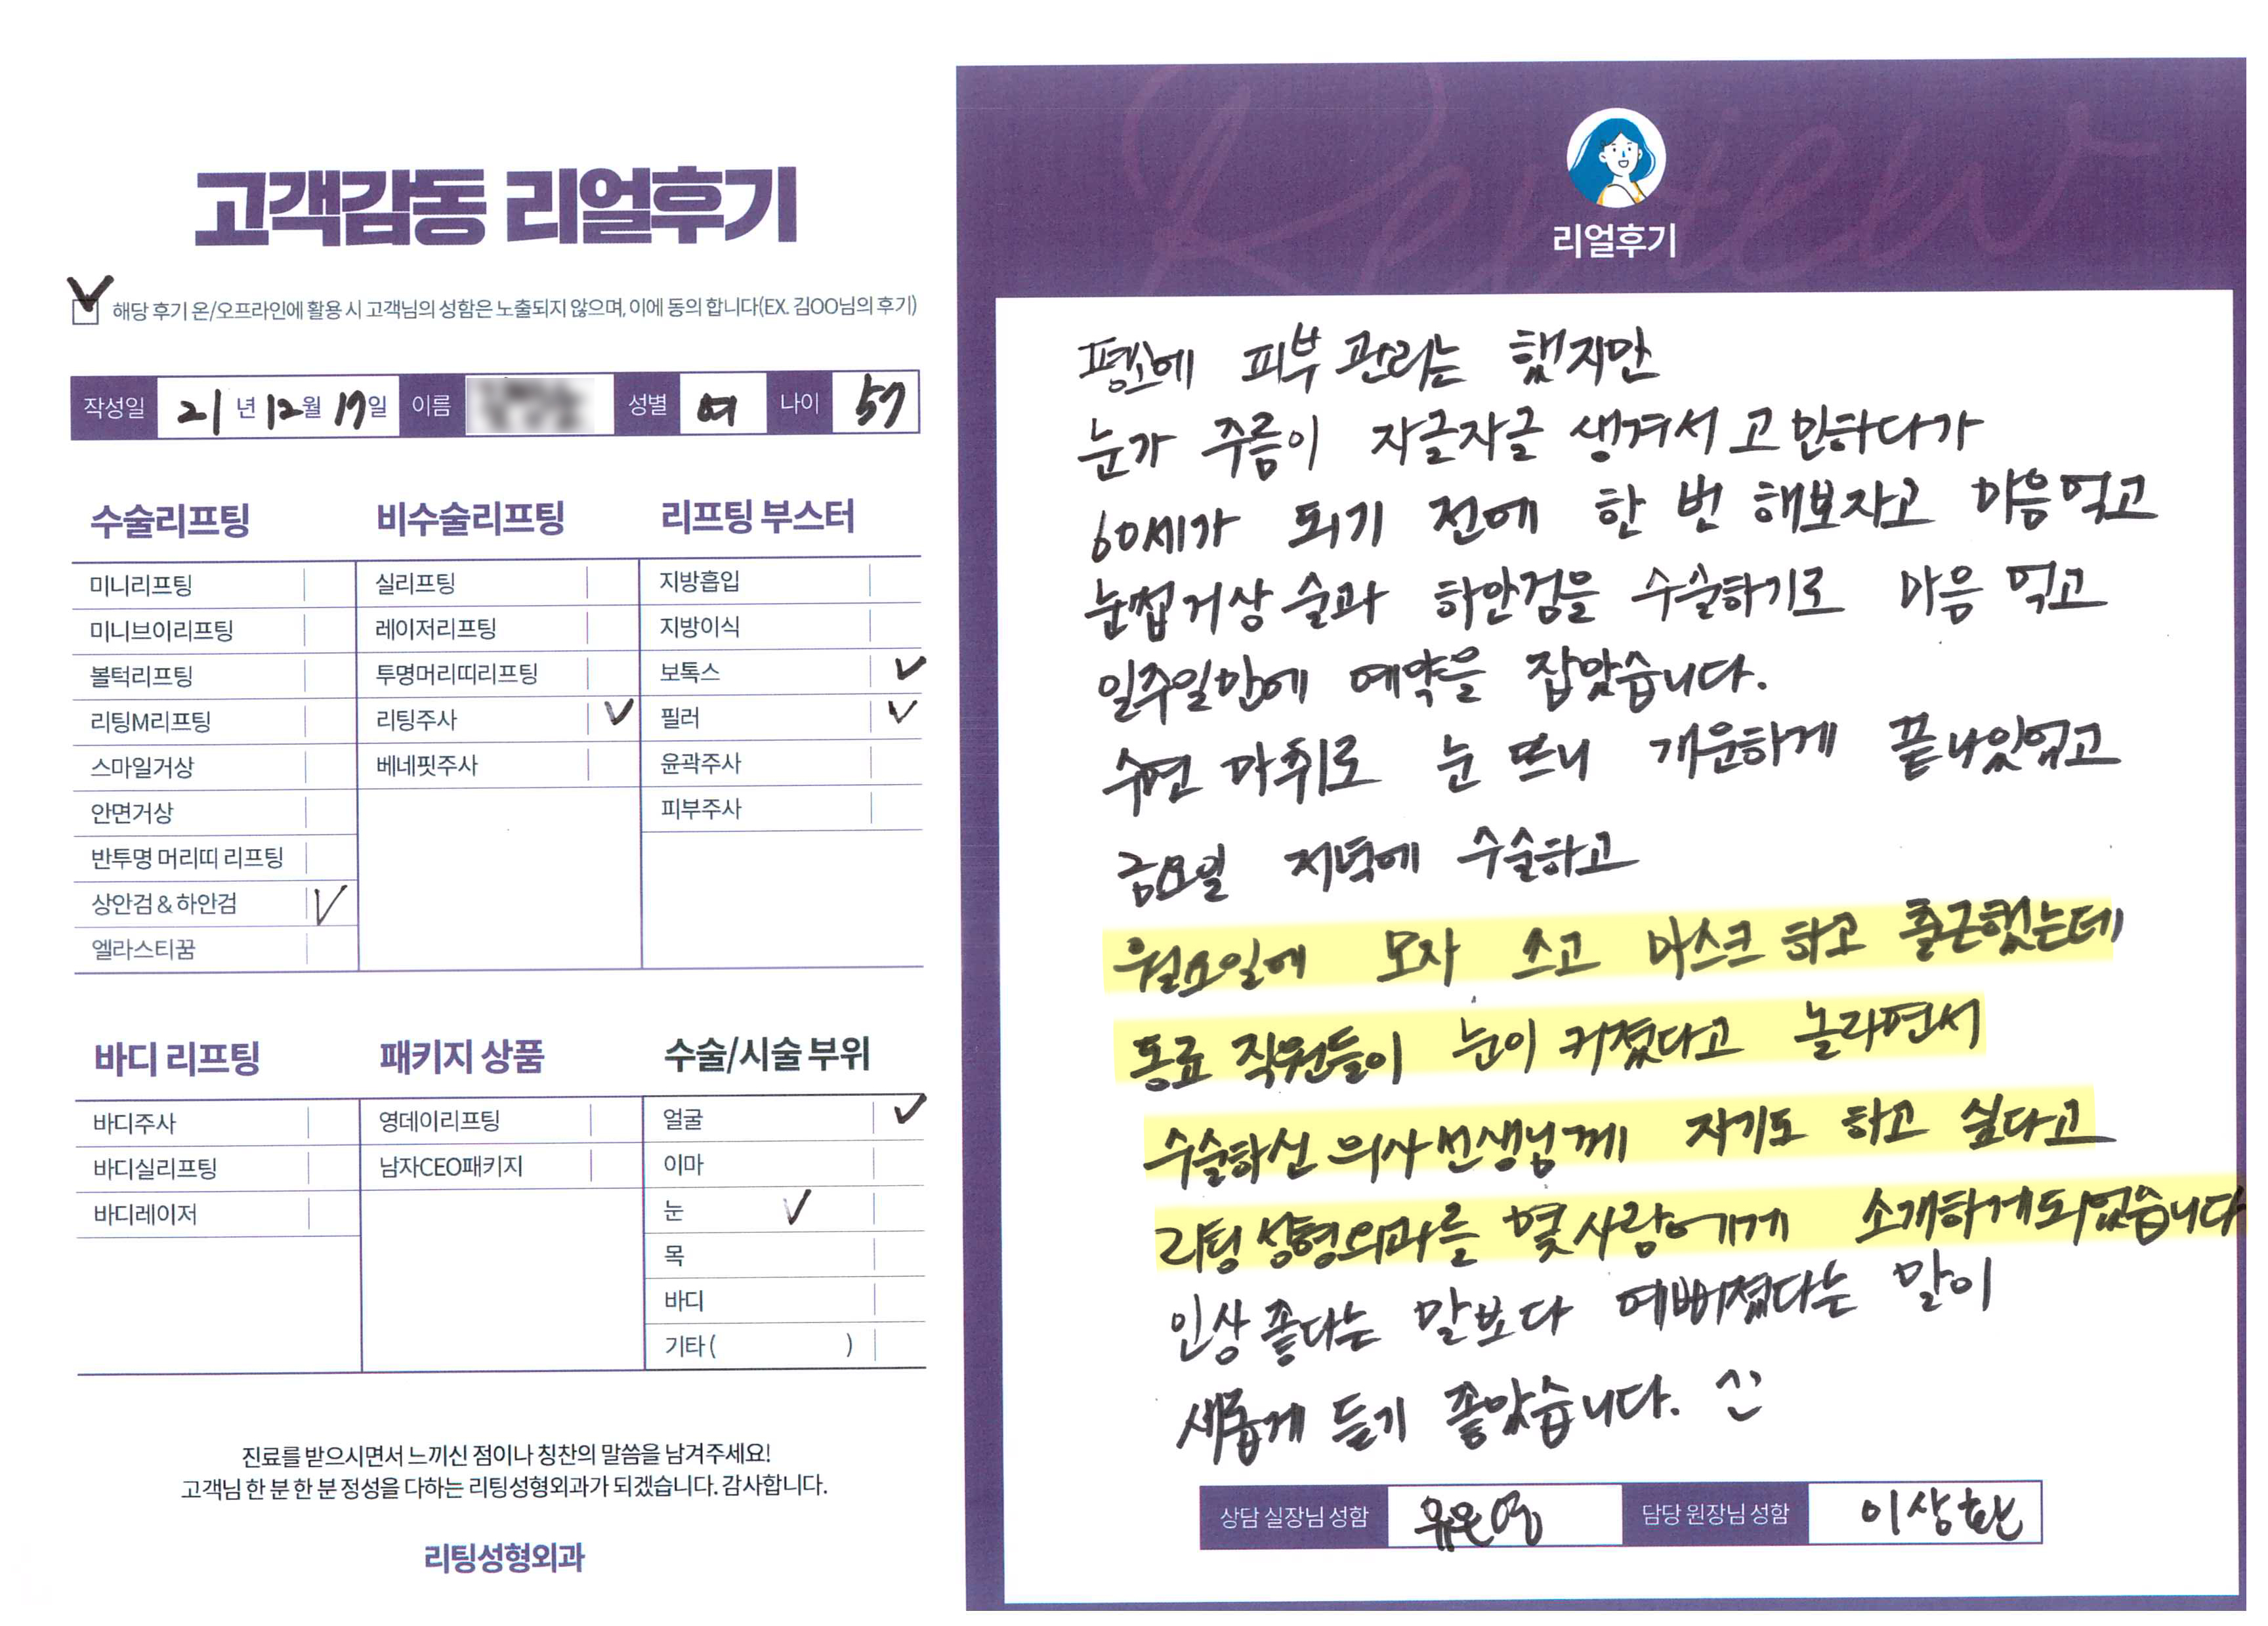 고객감동 리얼후기
해당 후기 온/오프라인에 활용 시 고객님의 성함은 노출되지 않으며, 이에 동의 합니다(EX. 김OO님의 후기)
작성일 21년 12월 17일 이름 성별 여 나이 57
수술리프팅
미니리프팅
미니브이리프팅
볼턱리프팅
리팅M리프팅
스마일거상
안면거상
반투명 머리띠 리프팅
상안검 & 하안검
엘라스티꿈
비수술리프팅
실리프팅
레이저리프팅
투명머리띠리프팅
리팅주사
베네핏주사
리프팅 부스터
지방흡입
지방이식
보톡스
필러
윤곽주사
피부주사
바디 리프팅
바디주사
바디실리프팅
바디레이저
패키지 상품
영데이리프팅
남자CEO패키지
수술/시술 부위
얼굴
이마
눈
목
바디
기타 ( )
진료를 받으시면서 느끼신 점이나 칭찬의 말씀을 남겨주세요!
고객님 한 분 한 분 정성을 다하는 리팅성형외과가 되겠습니다. 감사합니다.
리팅성형외과
Review
리얼후기
평소에 피부 관리는 했지만
눈가 주름이 자글자글 생겨서 고민하다가
60세가 되기 전에 한 번 해보자고 마음먹고
눈썹거상 술과 하안검을 수술하기로 마음 먹고
일주일안에 예약을 잡았습니다.
수면 마취로 눈 뜨니 개운하게 끝나있었고
금요일 저녁에 수술하고
월요일에 모자 쓰고 마스크 하고 출근했는데
동료 직원들이 눈이 커졌다고 놀라면서
수술하신 의사선생님께 자기도 하고 싶다고
리팅 성형외과를 몇 사람에게 소개하게되었습니다
인상 좋다는 말보다 예뻐졌다는 말이
새롭게 듣기 좋았습니다. ^^
상담 실장님 성함 담당 원장님 성함 이상환